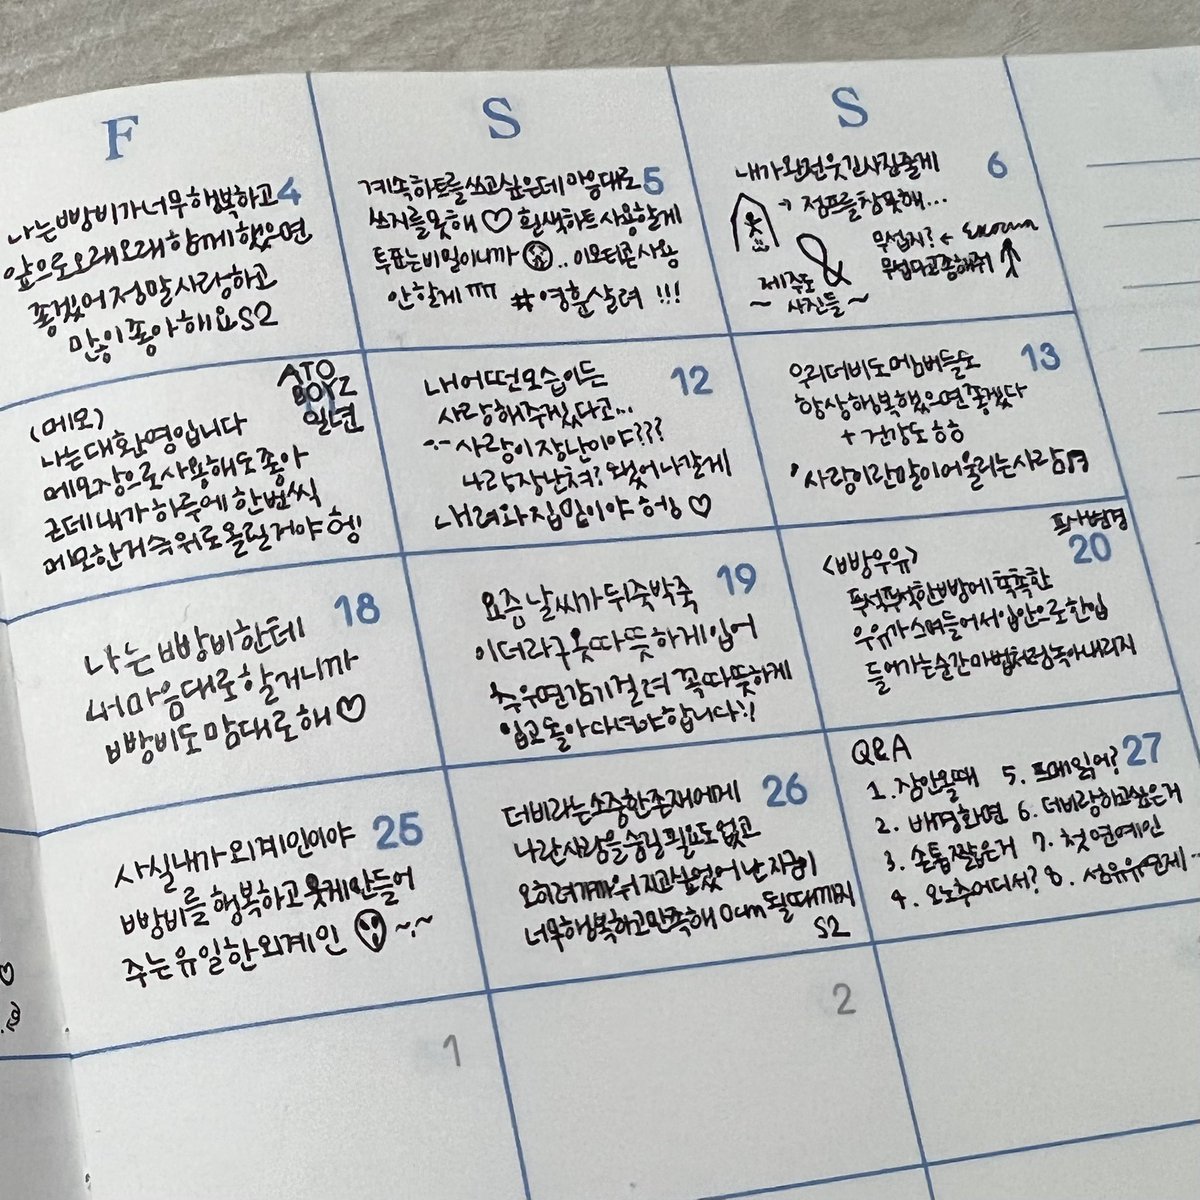 F
S
S
4
나는 빵비가 너무 행복하고
앞으로 오래오래 함께 했으면
좋겠어 정말 사랑하고
많이 좋아해요 S2
5
계속 하트를 쓰고 싶은데 마음대로
쓰지를 못해 ♡ 흰색하트 사용할게
투표는 비밀이니까 .. 이모티콘 사용
안할게 ㅠㅠ #영훈살려 !!!
6
내가 완전 웃긴 사진줄게
→ 점프를 잘 못해...
무섭지? ←
무섭다고 좀 해줘
제주도
~ 사진들 ~
ATO
BOYZ
일년
(메모)
나는 대화명입니다
메모장으로 사용해도 좋아
근데 내가 하루에 한번씩
메모한거 속 위로 올릴거야 헝!
12
내 어떤 모습이든
사랑해주겠다고...
사랑이 장난이야???
나랑 장난쳐? 됐어 나갈게
내려와 집 밑이야 헝 ♡
13
우리 더비도 멤버들도
항상 행복했으면 좋겠다
+ 건강도 ㅎㅎ
'사랑이란 말이 어울리는 사람♬
18
나는 빵비한테
내 마음대로 할거니까
빵비도 맘대로 해♡
19
요즘 날씨가 뒤죽박죽
이더라구 옷 따뜻하게 입어
추우면 감기 걸려 꼭 따뜻하게
입고 돌아다녀야 합니다!!
20
<빵우유>
푸석푸석한 빵에 촉촉한
우유가 스며들어서 입안으로 한입
들어가는 순간 마법처럼 녹아내리지
25
사실 내가 외계인이야
빵비를 행복하고 웃게 만들어
주는 유일한 외계인 ~.~
26
더비라는 소중한 존재에게
나란 사람을 숨길 필요도 없고
오히려 까까워지고 싶었어 난 지금이
너무 행복하고 만족해 0cm 될때까지
S2
27
Q&A
1. 잠안올때 5. 프메 읽어?
2. 배경화면 6. 더비랑 하고싶은거
3. 손톱 짧은거 7. 첫 연예인
4. 오노추 어디서? 8.
1
2